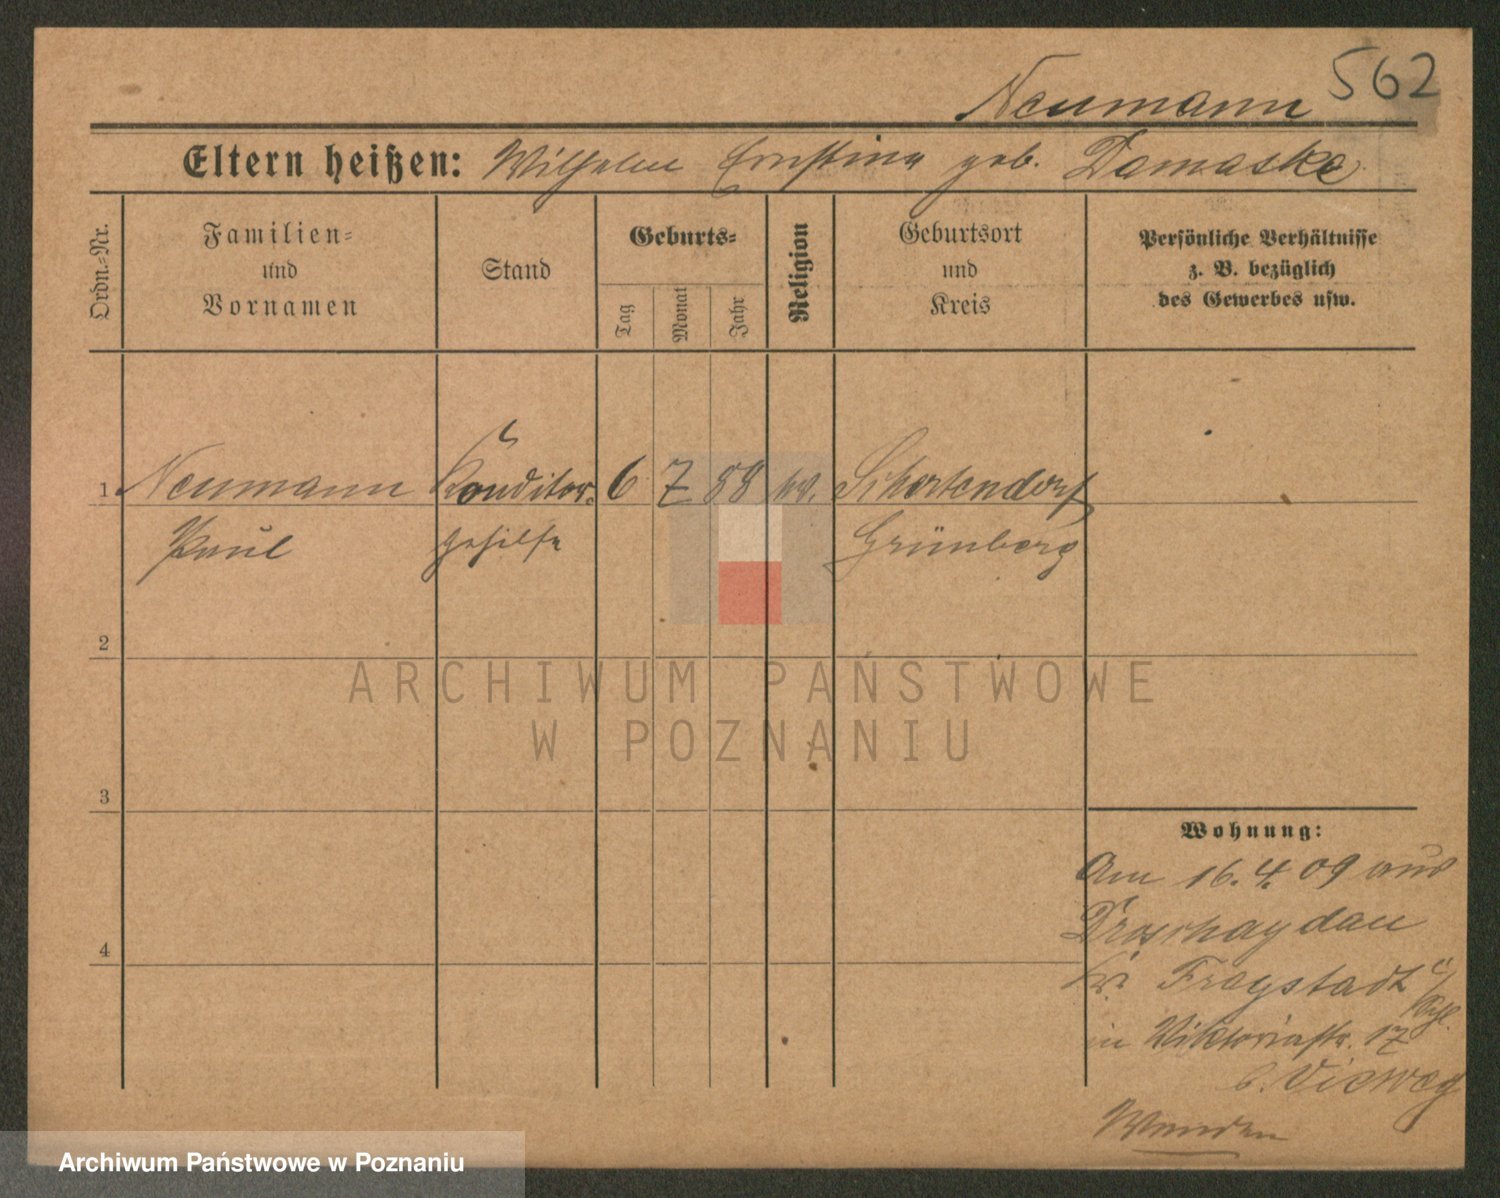 562
Neumann
Eltern heißen: Wilhelm Ernstine geb. Damaske
Ordn.-Nr.
Familien-
und
Vornamen
Stand
Geburts-
Tag
Monat
Jahr
Religion
Geburtsort
und
Kreis
Persönliche Verhältnisse
z. B. bezüglich
des Gewerbes usw.
1 Neumann Konditor- 6 7 88 ev. Schertendorf
Paul gehilfe Grünberg
2
3
4
Wohnung:
Am 16.4.09 aus
Droschaydau
Kr. Fraystadt
in Viktoriastr. 17
b. Vieweg
ARCHIWUM PAŃSTWOWE
W POZNANIU
Archiwum Państwowe w Poznaniu